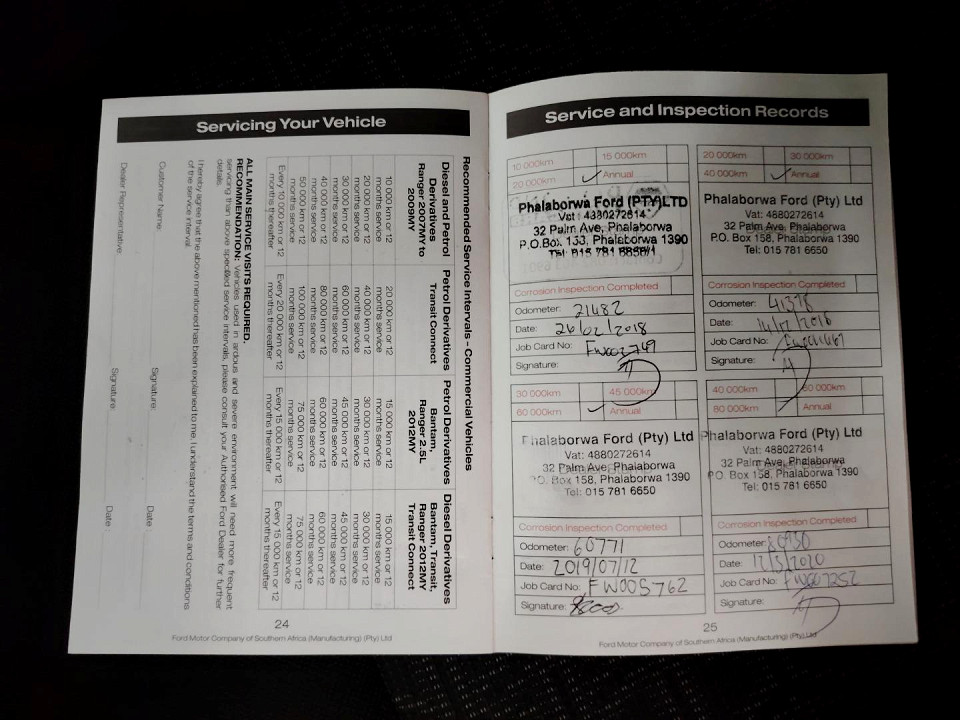 Servicing Your Vehicle
Recommended Service Intervals - Commercial Vehicles
Diesel and Petrol Derivatives Ranger 2007MY to 2009MY
10 000 km or 12 months service
20 000 km or 12 months service
30 000 km or 12 months service
40 000 km or 12 months service
50 000 km or 12 months service
Every 10 000 km or 12 months thereafter
Petrol Derivatives Transit Connect
20 000 km or 12 months service
40 000 km or 12 months service
60 000 km or 12 months service
80 000 km or 12 months service
100 000 km or 12 months service
Every 20 000 km or 12 months thereafter
Petrol Derivatives Bantam, Ranger 2.5L 2012MY
15 000 km or 12 months service
30 000 km or 12 months service
45 000 km or 12 months service
60 000 km or 12 months service
75 000 km or 12 months service
Every 15 000 km or 12 months thereafter
Diesel Derivatives Bantam, Transit, Ranger 2012MY Transit Connect
15 000 km or 12 months service
30 000 km or 12 months service
45 000 km or 12 months service
60 000 km or 12 months service
75 000 km or 12 months service
Every 15 000 km or 12 months thereafter
ALL MAIN SERVICE VISITS REQUIRED.
RECOMMENDATION: Vehicles used in ardous and severe environment will need more frequent
servicing than above specified service intervals, please consult your Authorised Ford Dealer for further
details.
I hereby agree that the above mentioned has been explained to me. I understand the terms and conditions
of the service interval.
Customer Name: Signature Date
Dealer Representative: Signature: Date
24
Ford Motor Company of Southern Africa (Manufacturing) (Pty) Ltd
Service and Inspection Records
10 000km 15 000km
20 000km ✓ Annual
Phalaborwa Ford (PTY)LTD
Vat: 4880272614
32 Palm Ave, Phalaborwa
P.O.Box 133, Phalaborwa 1390
Corrosion Inspection Completed
Odometer: 21482
Date: 26/02/2018
Job Card No: FW002749
Signature:
20 000km 30 000km
40 000km ✓ Annual
Phalaborwa Ford (Pty) Ltd
Vat: 4880272614
32 Palm Ave, Phalaborwa
P.O. Box 158, Phalaborwa 1390
Tel: 015 781 6650
Corrosion Inspection Completed
Odometer: 41378
Date: 14/12/2018
Job Card No:
Signature:
30 000km 45 000km
60 000km ✓ Annual
Phalaborwa Ford (Pty) Ltd
Vat: 4880272614
32 Palm Ave, Phalaborwa
P.O. Box 158, Phalaborwa 1390
Tel: 015 781 6650
Corrosion Inspection Completed
Odometer: 60771
Date: 2019/07/12
Job Card No: FW005762
Signature:
40 000km 60 000km
80 000km Annual
Phalaborwa Ford (Pty) Ltd
Vat: 4880272614
32 Palm Ave, Phalaborwa
P.O. Box 158, Phalaborwa 1390
Tel: 015 781 6650
Corrosion Inspection Completed
Odometer: 80930
Date: 12/5/2020
Job Card No: FW007252
Signature:
25
Ford Motor Company of Southern Africa (Manufacturing) (Pty) Ltd